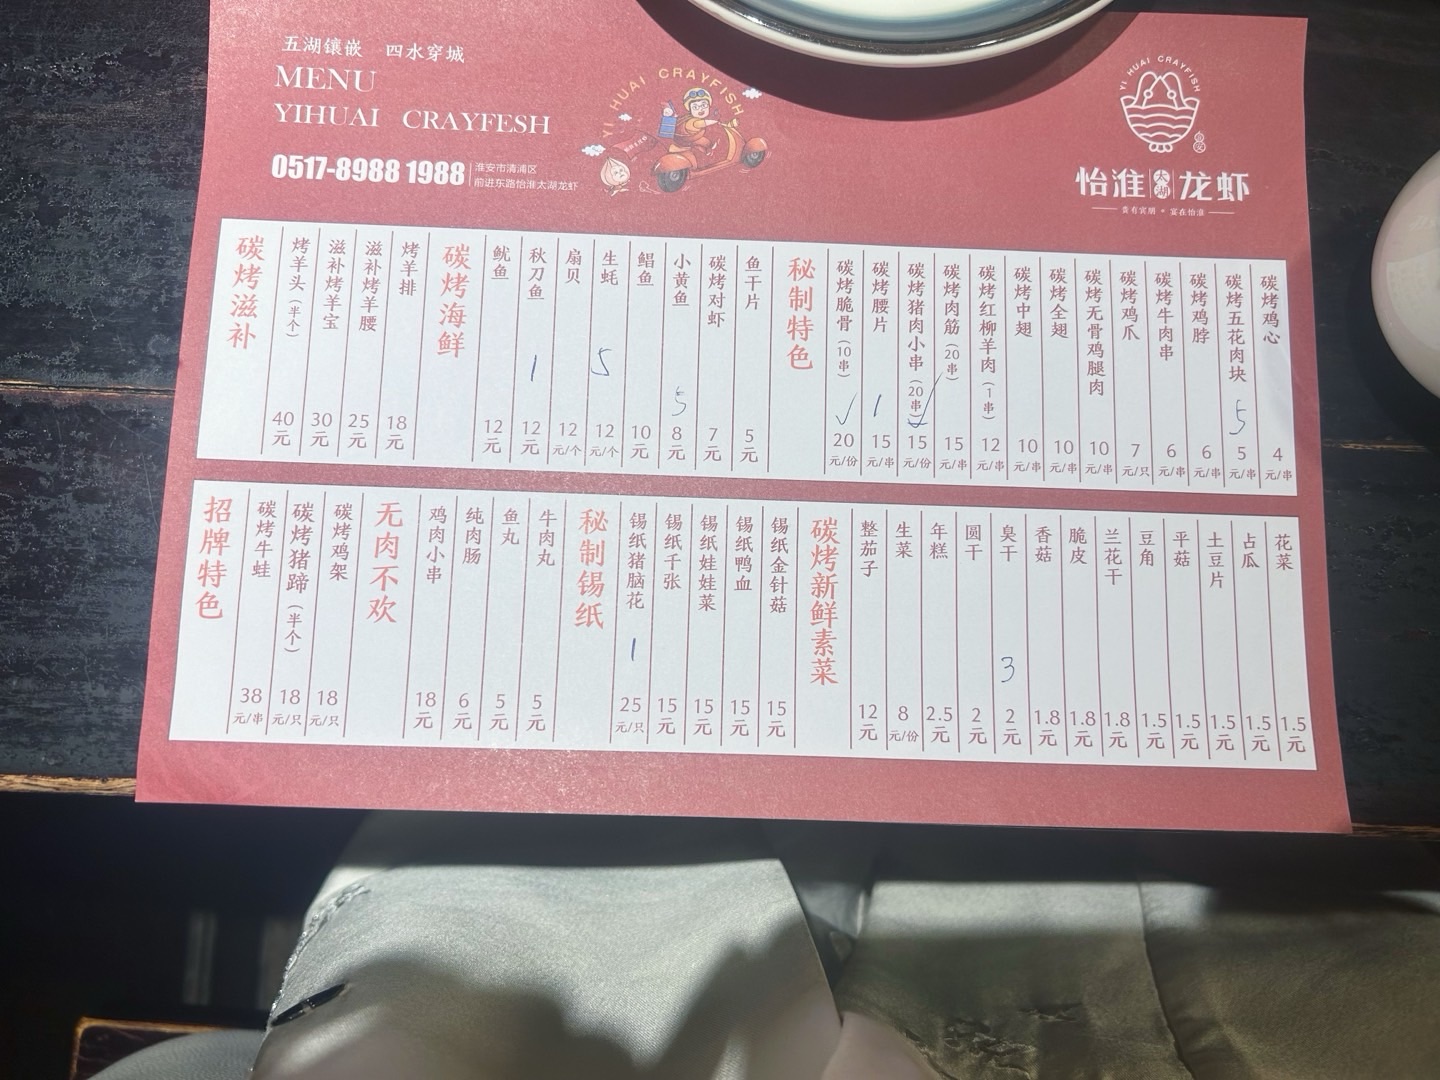 五湖镶嵌 四水穿城
MENU
YIHUAI CRAYFESH
0517-8988 1988
淮安市清浦区
前进东路怡淮太湖龙虾
YI HUAI CRAYFISH
YI HUAI CRAYFISH
怡淮 太湖 龙虾
贵有宾朋 · 宴在怡淮
碳烤滋补
烤羊头(半个) 40元
滋补烤羊宝 30元
滋补烤羊腰 25元
烤羊排 18元
碳烤海鲜
鱿鱼 12元
秋刀鱼 1 12元
扇贝 12元/个
生蚝 5 12元/个
鲳鱼 10元
小黄鱼 5 8元
碳烤对虾 7元
鱼干片 5元
秘制特色
碳烤脆骨(10串) ✓ 20元/份
碳烤腰片 1 15元/串
碳烤猪肉小串(20串) ✓ 15元/份
碳烤肉筋(20串) 15元/串
碳烤红柳羊肉(1串) 12元/串
碳烤中翅 10元/串
碳烤全翅 10元/串
碳烤无骨鸡腿肉 10元/串
碳烤鸡爪 7元/只
碳烤牛肉串 6元/串
碳烤鸡脖 6元/串
碳烤五花肉块 5 5元/串
碳烤鸡心 4元/串
招牌特色
碳烤牛蛙 38元/串
碳烤猪蹄(半个) 18元/只
碳烤鸡架 18元/只
无肉不欢
鸡肉小串 18元
纯肉肠 6元
鱼丸 5元
牛肉丸 5元
秘制锡纸
锡纸猪脑花 1 25元/只
锡纸千张 15元
锡纸娃娃菜 15元
锡纸鸭血 15元
锡纸金针菇 15元
碳烤新鲜素菜
整茄子 12元
生菜 8元/份
年糕 2.5元
圆干 2元
臭干 3 2元
香菇 1.8元
脆皮 1.8元
兰花干 1.8元
豆角 1.5元
平菇 1.5元
土豆片 1.5元
占瓜 1.5元
花菜 1.5元